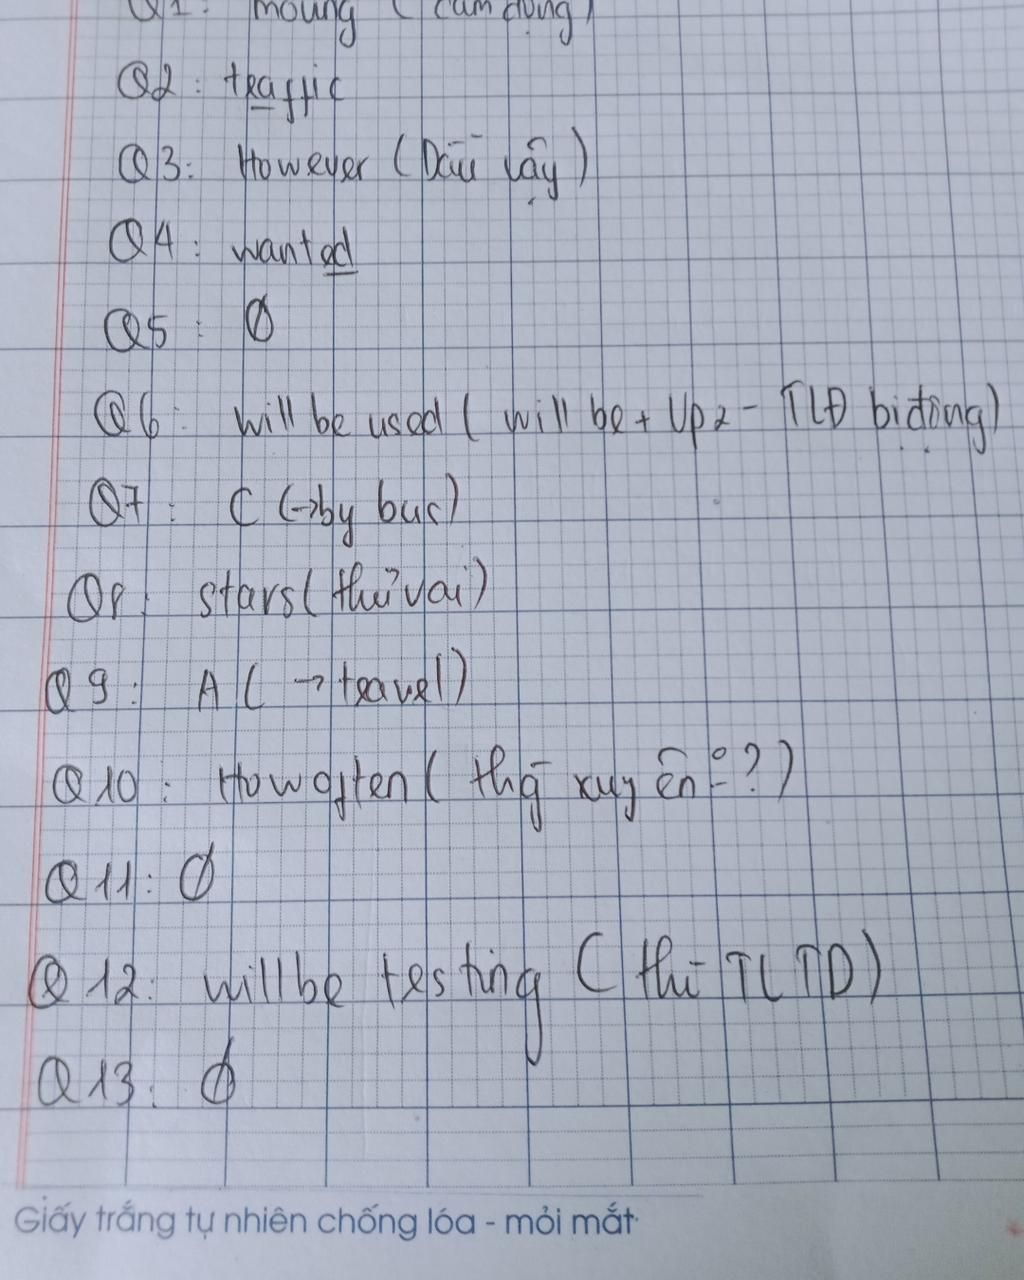 Q1: moving (cảm động)
Q2: traffic
Q3: However (Dẫu vậy)
Q4: wanted
Q5: Ø
Q6: will be used (will be + Vp2 - TLĐ bị động)
Q7: C (→by bus)
Q8: stars (thủ vai)
Q9: A (→ travel)
Q10: How often (thg xuyên ... ?)
Q11: Ø
Q12: will be testing (thì TLTD)
Q13: Ø
Giấy trắng tự nhiên chống lóa - mỏi mắt